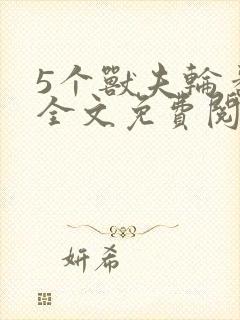 5个獸夫輪
全文免費閱
妍希